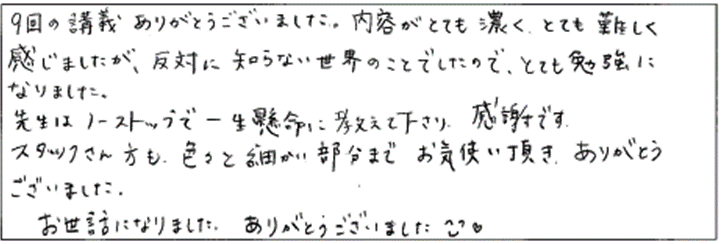 9回の講義 ありがとうございました。内容がとても濃く、とても難しく
感じましたが、反対に知らない世界のことでしたので、とても勉強に
なりました。
先生はノーストップで一生懸命に教えて下さり、感謝です。
スタッフさん方も、色々と細かい部分まで お気使い頂き、ありがとう
ございました。
お世話になりました。ありがとうございました